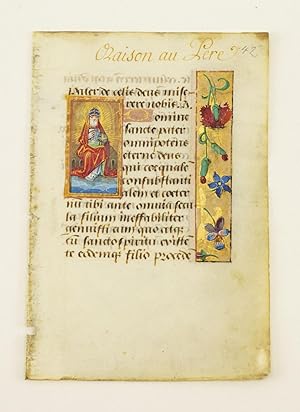 Oraison au Père 742
Pater de celis deus mise
rere nobis. D
omine
sancte pater
omnipotens
eterne deus
qui coequalē
consubstanti
alem et coeter
num tibi ante omnia secula
filium ineffabiliter
genuisti cum quo atq;
cū sancto spiritu
eodemq; filio procede